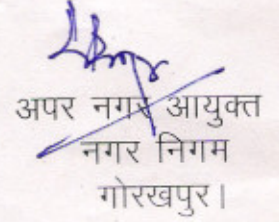 अपर नगर आयुक्त
नगर निगम
गोरखपुर।